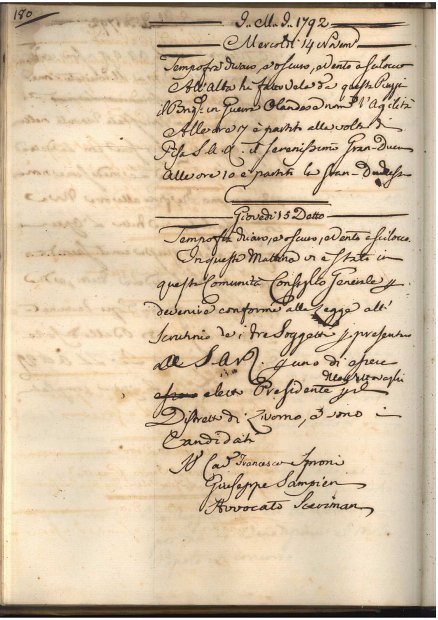 180
J. M. J. 1792
Mercoldì 14 Novem
Tempo fra chiaro, e oscuro, e vento a scilocco
All'Alba hà fatto vela da questa Piaggi
il Brig. in Guerra Olandese nom. l'Agilità
Alle ore 7 è partito alla volta di
Pisa S. A. R. il Serenissimo Gran-Duca
Alle ore 10 è partita la Gran-Duchessa
Giovedì 15 Detto
Tempo fra chiaro, e oscuro, e vento a scilocco
In questa Mattina vi è stato in
questa Comunità Consiglio Generale p.
devenire conforme alla Legge all'
scrutinio de i tre Soggetti p. presentare
a S. A. R. q. uno di essere
eletto Presidente p. il
Distretto di Livorno, e sono i
Candidati
Sr. Cav. Francesco Sproni
Giuseppe Sampieri
Avvocato Sceriman